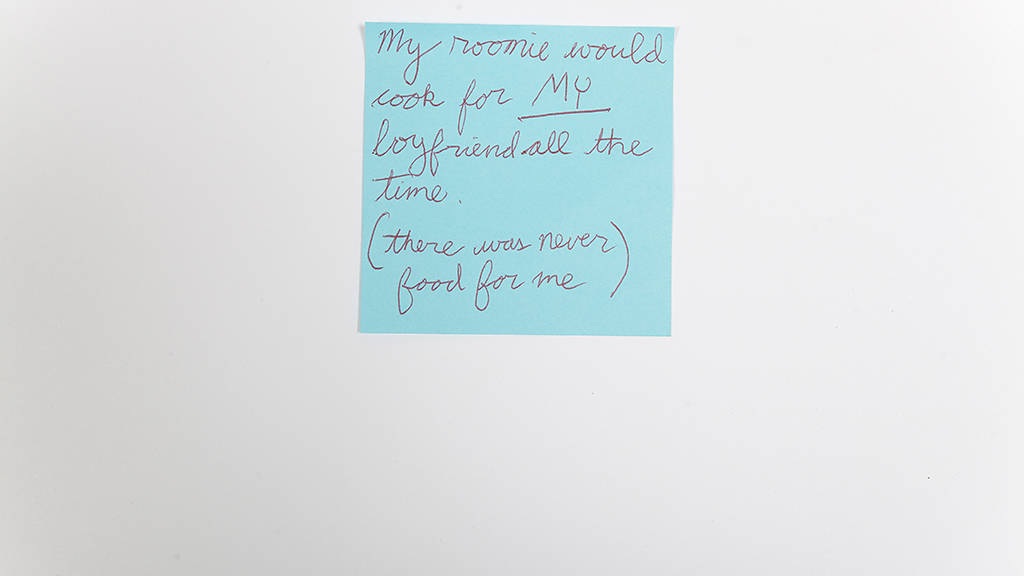 My roomie would
cook for MY
boyfriend all the
time.
(there was never)
food for me